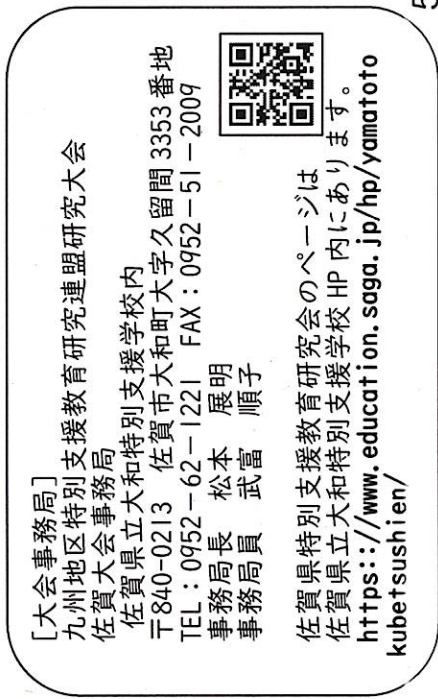 [大会事務局]
九州地区特別支援教育研究連盟研究大会
佐賀大会事務局
佐賀県立大和特別支援学校内
〒840-0213 佐賀市大和町大字久留間 3353 番地
TEL：0952−62−1221 FAX：0952−51−2009
事務局長 松本 展明
事務局員 武富 順子
佐賀県特別支援教育研究会のページは
佐賀県立大和特別支援学校 HP 内にあります。
https:://www.education.saga.jp/hp/yamatoto
kubetsushien/